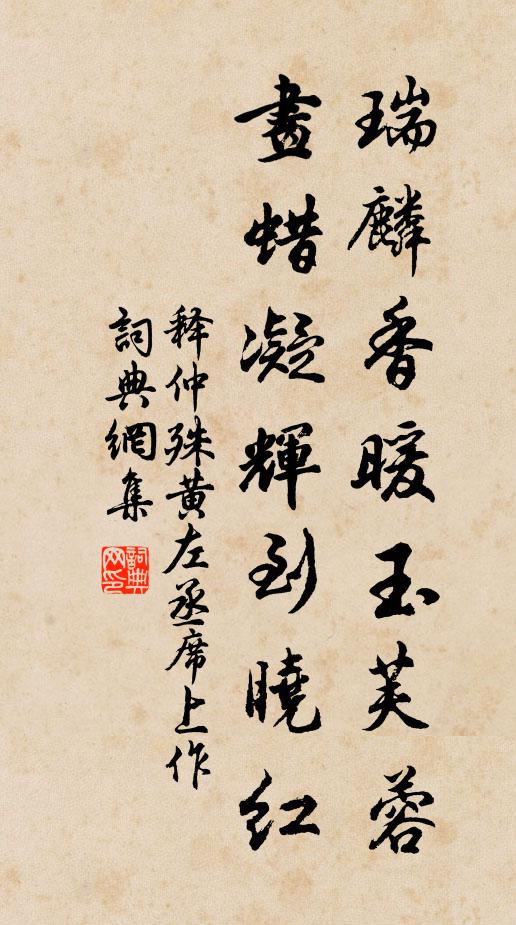 瑞麟香暖玉芙蓉
畫蜡凝輝到曉红
释仲殊黄左丞席上作
詞典網集
詞典网印